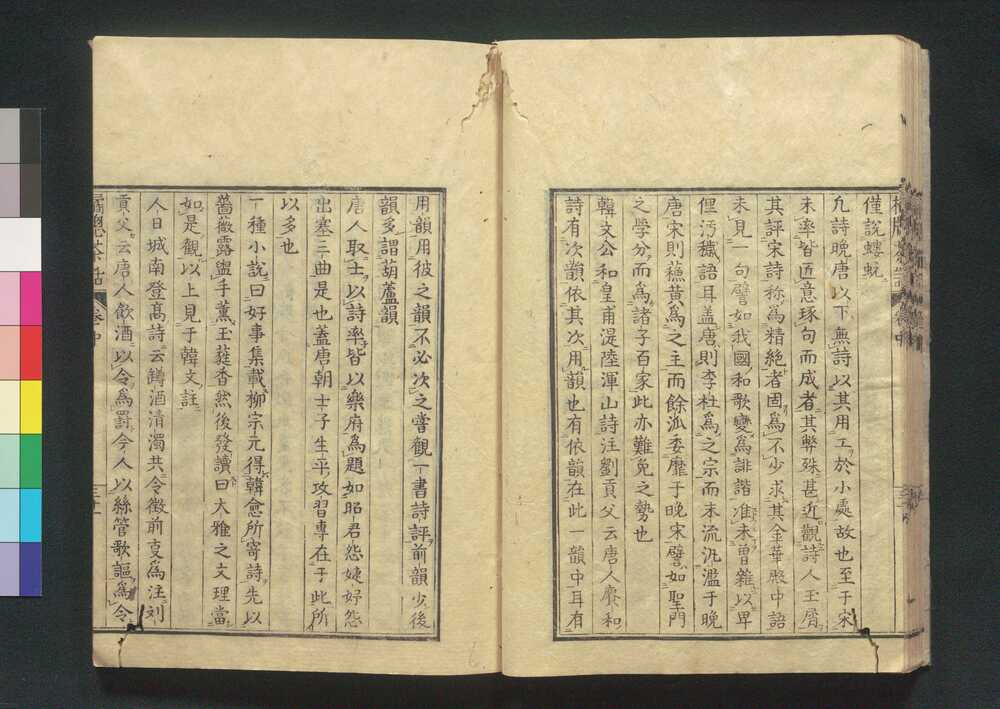 僅說螻蛻
凢詩晚唐以下無詩以其用工於小處故也至于宋
末率皆匠意琢句而成者其弊殊甚近觀詩人玉屑
其評宋詩称為精絶者固為不少求其金華殿中語
未見一句譬如我國和歌變為誹諧准未曽雜以卑
俚汚穢語耳盖唐則李杜為之宗而末流汎濫于晚
唐宋則蘓黄為之主而餘泒委靡于晚宋譬如聖門
之學分而為諸子百家此亦難免之勢也
韓文公和皇甫湜陸渾山詩注劉貢父云唐人賡和
詩有次韻依其次用韻也有依韻在此一韻中耳有
用韻用彼之韻不必次之嘗觀一書詩評前韻少後
韻多謂胡蘆韻
唐人取士以詩率皆以樂府為題如昭君怨婕妤怨
出塞三曲是也蓋唐朝士子生平攻習專在于此所
以多也
一種小說曰好事集載柳宗元得韓愈所寄詩先以
薔薇露盥手薰玉蕤香然後發讀曰大雅之文理當
如是觀以上見于韓文註
人日城南登髙詩云鱒酒清濁共令徴前叓為注刘
貢父云唐人飲酒以令為罸今人以絲管歌謳為令